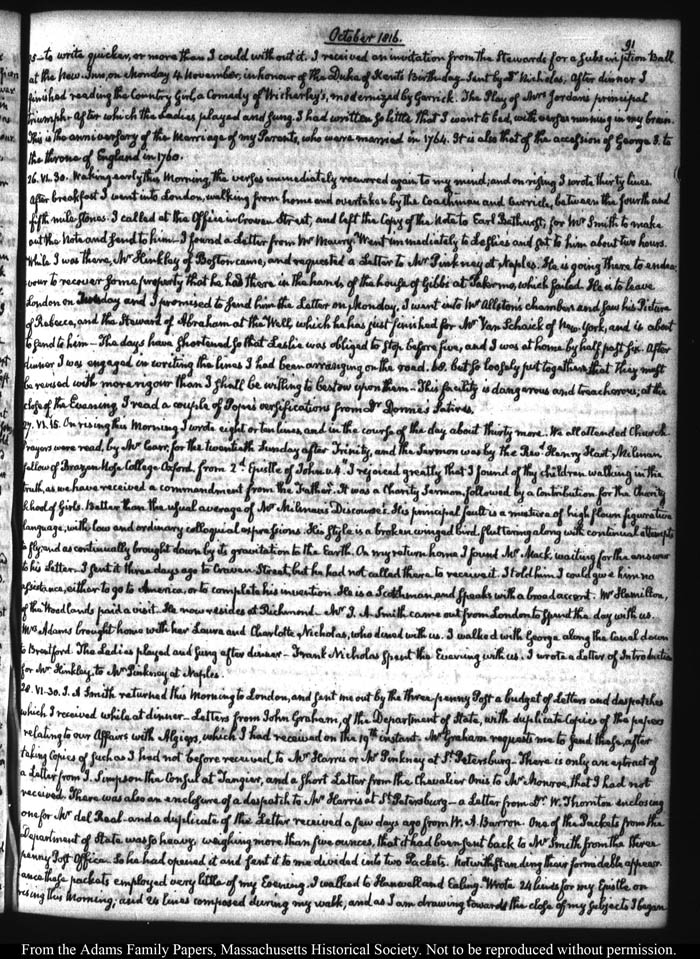 October 1816.
91
25— to write quicker, or more than I could without it. I received an invitation from the Stewards for a Subscription Ball
at the New Inn, on Monday 4 November, in honour of the Duke of Kent's Birthday. Sent by Dr Nicholas. After dinner I
finished reading the Country Girl, a Comedy of Wicherley's, modernized by Garrick. The Play of Mrs Jordan's principal
triumph. After which the Ladies played and sung. I had written so little that I went to bed, with verses running in my brain.
This is the anniversary of the Marriage of my Parents, who were married in 1764. It is also that of the accession of George 3. to
the throne of England in 1760.
26. VI.30. Waking early this Morning, the verses immediately recurred again to my mind; and on rising I wrote thirty lines.
After breakfast I went into London, walking from home and overtaken by the Coachman and Curricle, between the fourth and
fifth mile stones. I called at the Office in Craven Street, and left the Copy of the Note to Earl Bathurst, for Mr Smith to make
out the Note and send to him. I found a Letter from Mr Maury. Went immediately to Leslie's and sat to him about two hours.
While I was there, Mr Hinkley of Boston came, and requested a Letter to Mr Pinkney at Naples. He is going there to endea-
vour to recover some property that he had there in the hands of the house of Gibbs at Palermo, which failed. He is to leave
London on Tuesday and I promised to send him the Letter on Monday. I went into Mr Allston's chamber and saw his Picture
of Rebecca, and the Steward of Abraham at the Well, which he has just finished for Mr Van Schaick of New York, and is about
to send to him— The days have shortened so that Leslie was obliged to stop before five, and I was at home by half past six. After
dinner I was engaged in writing the lines I had been arranging on the road. 60. but so loosely put together that they must
be revised with more rigour than I shall be willing to bestow upon them— This facility is dangerous and treacherous; at the
close of the Evening I read a couple of Pope's versifications from Dr Donne's Satires.
27. VI.15. On rising this Morning I wrote eight or ten lines, and in the course of the day about thirty more. We all attended Church
Prayers were read, by Mr Carr, for the twentieth Sunday after Trinity, and the Sermon was by the Revd Henry Hart Milman
fellow of Brazen Nose College Oxford, from 2d Epistle of John v.4. I rejoiced greatly that I found of thy children walking in the
truth, as we have received a commandment from the Father. It was a Charity Sermon, followed by a contribution for the Charity
School of Girls. Better than the usual average of Mr Milman's Discourses. His principal fault is a mixture of high flown figurative
language, with low and ordinary colloquial expressions. His style is a broken winged bird, fluttering along with continual attempts
to fly, and as continually brought down by its gravitation to the Earth. On my return home I found Mr Mack, waiting for the answer
to his Letter. I sent it three days ago to Craven Street, but he had not called there to receive it. I told him I could give him no
assistance, either to go to America, or to complete his invention. He is a Scotchman, and speaks with a broad accent. Mr Hamilton,
of the Woodlands paid a visit. He now resides at Richmond. Mr J. A. Smith came out from London to spend the day with us.
Mrs Adams brought home with her Laura and Charlotte Nicholas, who dined with us. I walked with George along the Canal down
to Brentford. The Ladies played and sung after dinner— Frank Nicholas spent the Evening with us. I wrote a Letter of Introduction
for Mr Hinkley, to Mr Pinkney at Naples.
28. VI.30. J. A Smith returned this Morning to London, and sent me out by the three-penny Post a budget of Letters and despatches
which I received while at dinner— Letters from John Graham, of the Department of State, with duplicate Copies of the papers
relating to our Affairs with Algiers, which I had received on the 19th instant. Mr Graham requests me to send these, after
taking Copies of such as I had not before received to Mr Harris or Mr Pinkney at St Petersburg— There is only an extract of
a Letter from J. Simpson the Consul at Tangier, and a short Letter from the Chevalier Onis to Mr Monroe, that I had not
received. There was also an enclosure of a despatch to Mr Harris at St Petersburg— a Letter from Dr W. Thornton enclosing
one for Mr del Real and a duplicate of the Letter received a few days ago from W. A. Barron— One of the Packets from the
Department of State was so heavy, weighing more than five ounces, that it had been sent back to Mr Smith from the three-
penny Post Office. So he had opened it and sent it to me divided into two Packets. Notwithstanding their formidable appear-
ance these packets employed very little of my Evening. I walked to Hanwell and Ealing. Wrote 24 lines for my Epistle on
rising this Morning, and 28 lines composed during my walk, and as I am drawing towards the close of my subjects I began
From the Adams Family Papers, Massachusetts Historical Society. Not to be reproduced without permission.